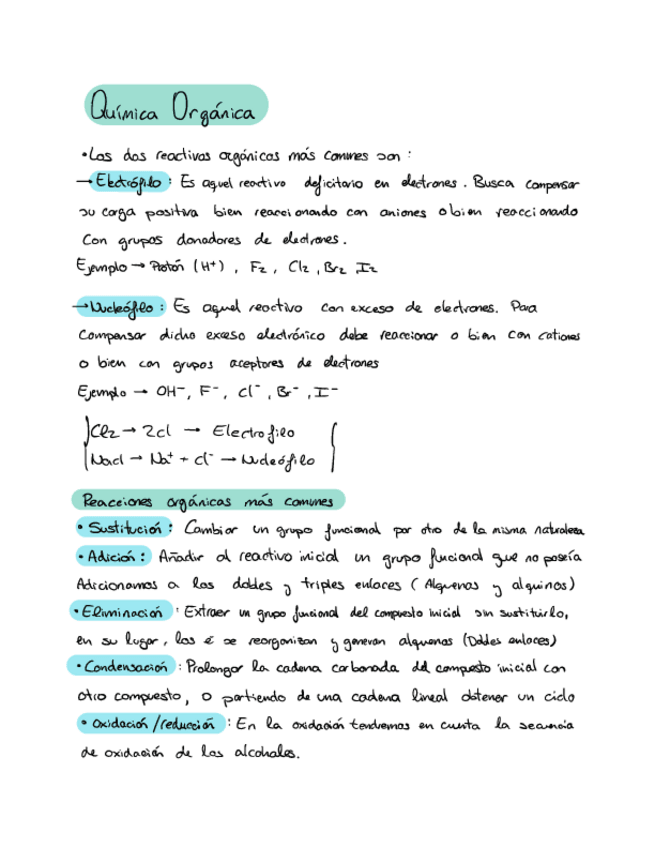 Química Orgánica
•Los dos reactivos orgánicos más comunes son :
→ Electrófilo : Es aquel reactivo deficitario en electrones. Busca compensar
su carga positiva bien reaccionando con aniones o bien reaccionando
con grupos donadores de electrones.
Ejemplo → Protón (H+) , F2 , Cl2 , Br2 , I2
→ Nucleófilo : Es aquel reactivo con exceso de electrones. Para
compensar dicho exceso electrónico debe reaccionar o bien con cationes
o bien con grupos aceptores de electrones
Ejemplo → OH-, F-, Cl-, Br-, I-
Cl2 → 2Cl → Electrofilo
Nacl → Na+ + cl- → Nucleófilo
Reacciones orgánicas más comunes
• Sustitución : Cambiar un grupo funcional por otro de la misma naturaleza
• Adición : Añadir al reactivo inicial un grupo funcional que no poseía
Adicionamos a los dobles y triples enlaces ( Alquenos y alquinos)
• Eliminación : Extraer un grupo funcional del compuesto inicial sin sustituirlo,
en su lugar, los é se reorganizan y generan alquenos (Dobles enlaces)
• Condensación : Prolongar la cadena carbonada del compuesto inicial con
otro compuesto, o partiendo de una cadena lineal obtener un ciclo
• oxidación /reducción : En la oxidación tendremos en cuenta la secuencia
de oxidación de los alcoholes.